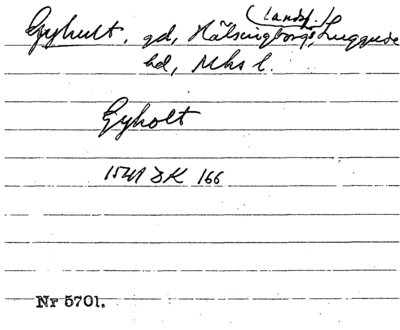 Gyhult, gd, Hälsingborgs (Landsf.) Luggude
hd, Mhs l.
Gyholt
1541 DK 166
Nr 5701.